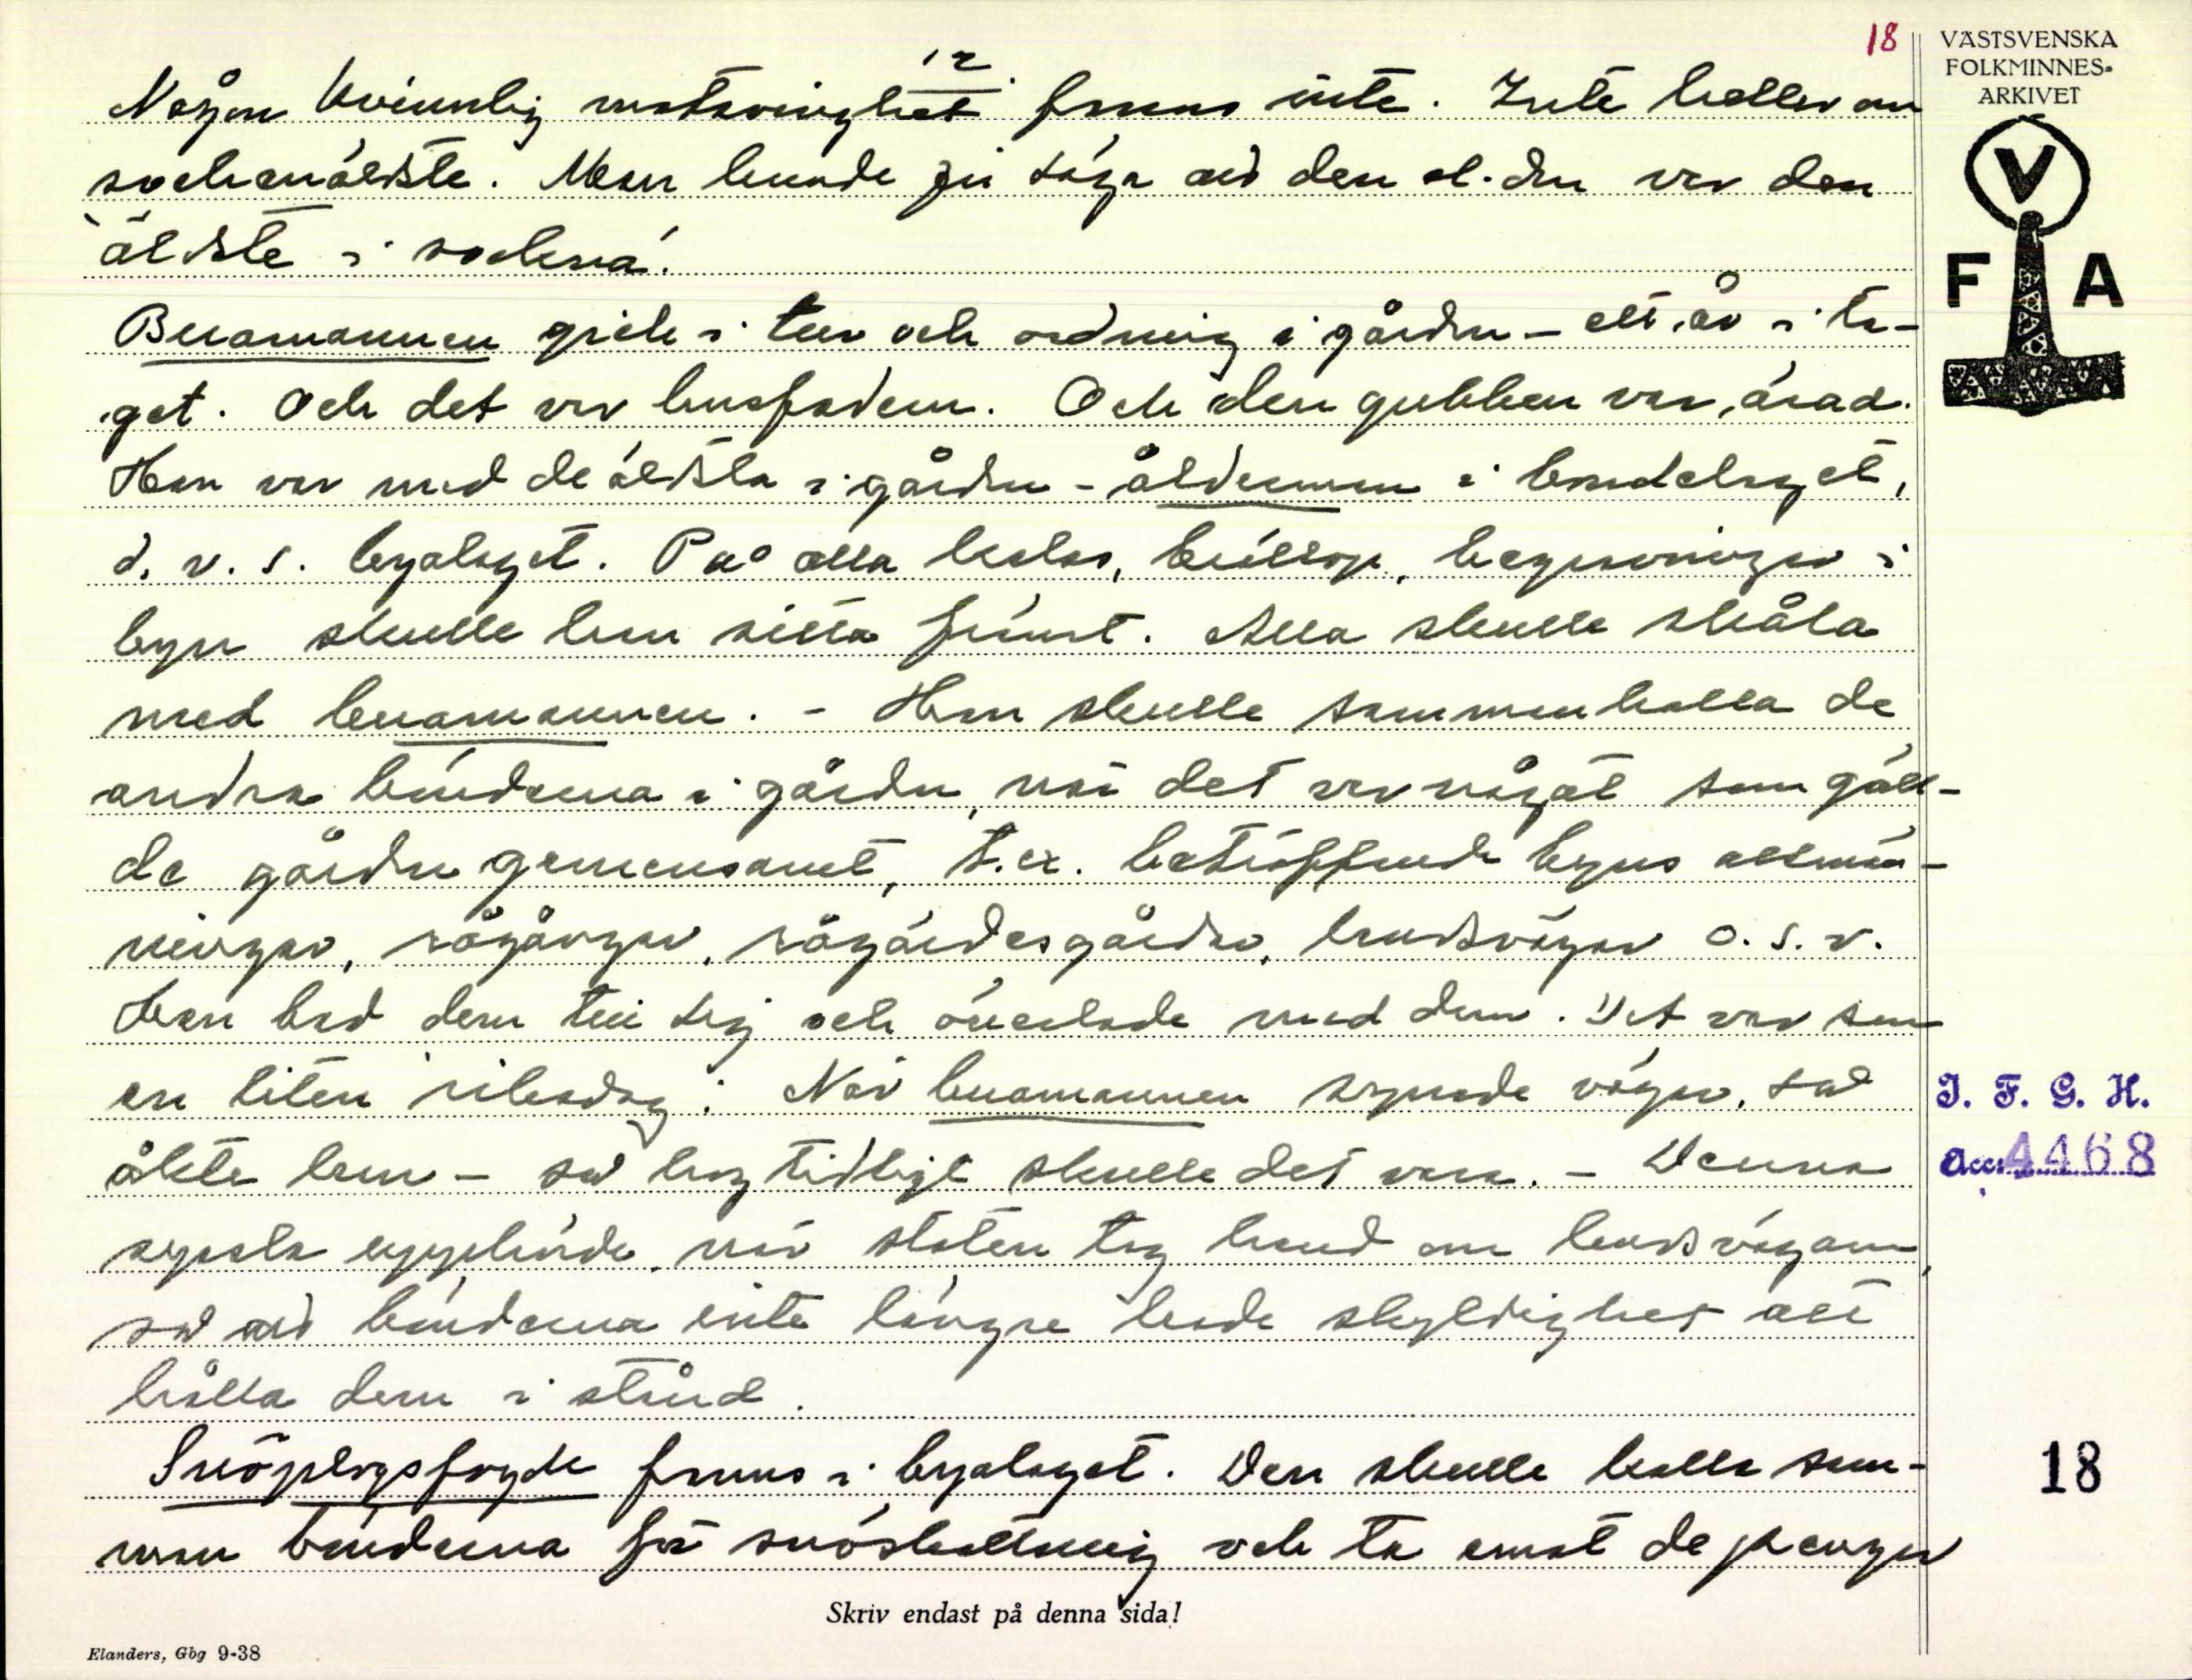 18
12
Någon kvinnlig motsvarighet fanns inte. Inte heller en
sockenäldste. Man kunde ju säga att den el. den var den
äldste i socknen.
Buamannen gick i tur och ordning i gården – ett år i ta-
get. Och det var husfadern. Och den gubben var ärad.
Han var med de äldsta i gården – ålderman i bondelaget,
d. v. s. byalaget. På alla kalas, bröllop, begravningar i
byn skulle han sitta främst. Alla skulle skåla
med buamannen. – Han skulle sammankalla de
andra bönderna i gården, när det var något som gäll-
de gården gemensamt, t. ex. beträffande byns allmän-
ningar, rågångar, rågärdesgårdar, landsvägar o. s. v.
Han bad dem till sig och överlade med dem. Det var som
en liten riksdag. När buamannen synade vägar, så
åkte han – så högtidligt skulle det vara. – Denna
syssla upphörde, när staten tog hand om landsvägarna,
så att bönderna inte längre hade skyldighet att
hålla dem i stånd.
Snöplogsfogde fanns i byalaget. Den skulle kalla sam-
man bönderna för snöskottning och ta emot de pengar
VÄSTSVENSKA
FOLKMINNES-
ARKIVET
V
F A
I. F. G. H.
Acc. 4468
18
Skriv endast på denna sida!
Elanders, Gbg 9-38